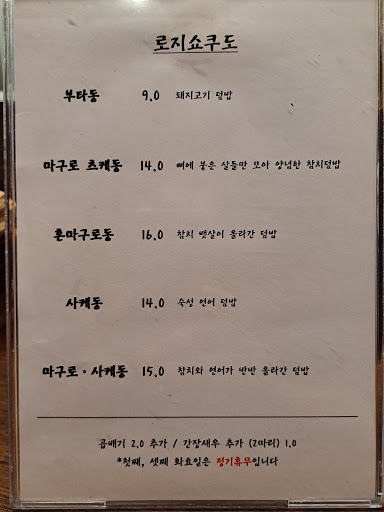 로지쇼쿠도
부타동 9.0 돼지고기 덮밥
마구로 츠케동 14.0 뼈에 붙은 살들만 모아 양념한 참치덮밥
혼마구로동 16.0 참치 뱃살이 올라간 덮밥
사케동 14.0 숙성 연어 덮밥
마구로·사케동 15.0 참치와 연어가 반반 올라간 덮밥
곱빼기 2.0 추가 / 간장새우 추가 (2마리) 1.0
*첫째, 셋째 화요일은 정기휴무입니다